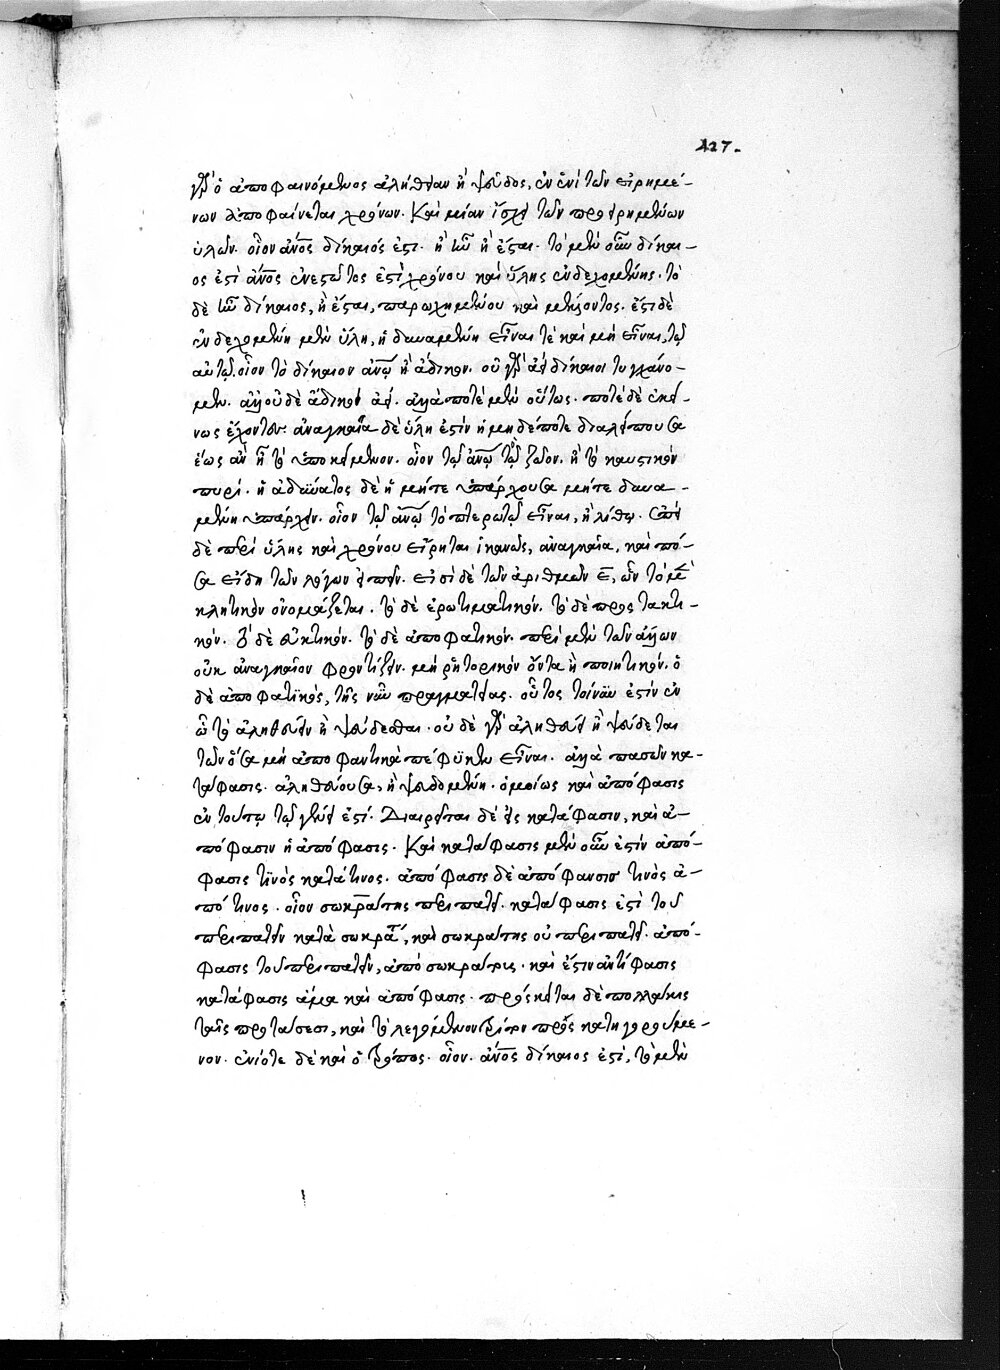 127.
γὰρ ὁ ἀποφαινόμενος ἀλήθειαν ἢ ψεῦδος, ἐν ἑνὶ τῶν εἰρημέ-
νων ἀποφαίνεται χρόνων. Καὶ μίαν ἴσχει τῶν προειρημένων
ὑλῶν. οἷον ἄνος δίκαιός ἐστι. ἢ ἦν ἢ ἔσται. τὸ μὲν οὖν δίκαι-
ος ἐστὶ ἄνος ἐνεστῶτος ἐστὶ χρόνου καὶ ὕλης ἐνδεχομένης. τὸ
δὲ ἦν δίκαιος, ἢ ἔσται, παρωχημένου καὶ μέλλοντος. ἔστι δὲ
ἐνδεχομένη μὲν ὕλη, ἡ δυναμένη εἶναι τὲ καὶ μὴ εἶναι, τῷ
αὐτῷ. οἷον τὸ δίκαιον ἀνῳ ἢ ἄδικον. οὐ γὰρ ἀεὶ δίκαιοι τυγχάνο-
μεν. ἀλλ' οὐδὲ ἄδικοι ἀεί. ἀλλὰ ποτὲ μὲν οὕτως. ποτὲ δὲ ἐκεί-
νως ἔχοντες. ἀναγκαῖα δὲ ὕλη ἐστὶν ἡ μηδέποτε διαλείπουσα
ἕως ἂν ᾖ τὸ ὑποκείμενον. οἷον τῷ ἀνῳ τὸ ζῶον. ἢ τὸ καυστικὸν
πυρί. ἡ ἀδύνατος δὲ ἡ μήτε ὑπάρχουσα μήτε δυνα-
μένη ὑπάρχειν. οἷον τῷ ἀνῳ τὸ πτερωτῷ εἶναι, ἢ λίθῳ. ἐπεὶ
δὲ περὶ ὕλης καὶ χρόνου εἴρηται ἱκανῶς, ἀναγκαῖα, καὶ πό-
σα εἴδη τῶν λόγων εἰπεῖν. εἰσὶ δὲ τῶν ἀριθμῶν ε, ὧν τὸ μὲν
κλητικὸν ὀνομάζεται. τὸ δὲ ἐρωτιματικόν. τὸ δὲ προστακτι-
κόν. τὸ δὲ εὐκτικόν. τὸ δὲ ἀποφατικόν. περὶ μὲν τῶν ἄλλων
οὐκ ἀναγκαῖον φροντίζειν. μὴ ῥητορικὸν ὄντα ἢ ποιητικόν. ὁ
δὲ ἀποφατικὸς, τῆς νῦν πραγματείας. οὗτος τοίνυν ἐστὶν ἐν
ᾧ τὸ ἀληθεύειν ἢ ψεύδεσθαι. οὐδὲ γὰρ ἀληθεύει ἢ ψεύδεται
τῶν ὅσα μὴ ἀποφαντικὰ πέφυκεν εἶναι. ἀλλὰ πασῶν κα-
τάφασις. ἀληθεύουσα, ἢ ψευδομένη. ὁμοίως καὶ ἀπόφασις
ἐν τούτῳ τῷ γένει ἐστί. Διαιρεῖται δὲ εἰς κατάφασιν, καὶ ἀ-
πόφασιν ἡ ἀπόφασις. Καὶ κατάφασις μὲν οὖν ἐστὶν ἀπό-
φασις τινὸς κατά τινος. ἀπόφασις δὲ ἀπόφανσις τινὸς ἀ-
πό τινος. οἷον σωκράτης περιπατεῖ. κατάφασις ἐστὶ τοῦ
περιπατεῖν κατὰ σωκρατ, καὶ σωκράτης οὐ περιπατεῖ. ἀπό-
φασις τοῦ περιπατεῖν, ἀπὸ σωκράτους. καὶ ἔστιν ἀντίφασις
κατάφασις ἅμα καὶ ἀπόφασις. πρόσκειται δὲ πολλάκις
ταῖς προτάσεσι, καὶ τὸ λεγόμενον τρίτον πρὸς κατηγορούμε-
νον. ἐνίοτε δὲ καὶ ὁ τρόπος. οἷον. ἄνος δίκαιος ἐστὶ, τὸ μὲν